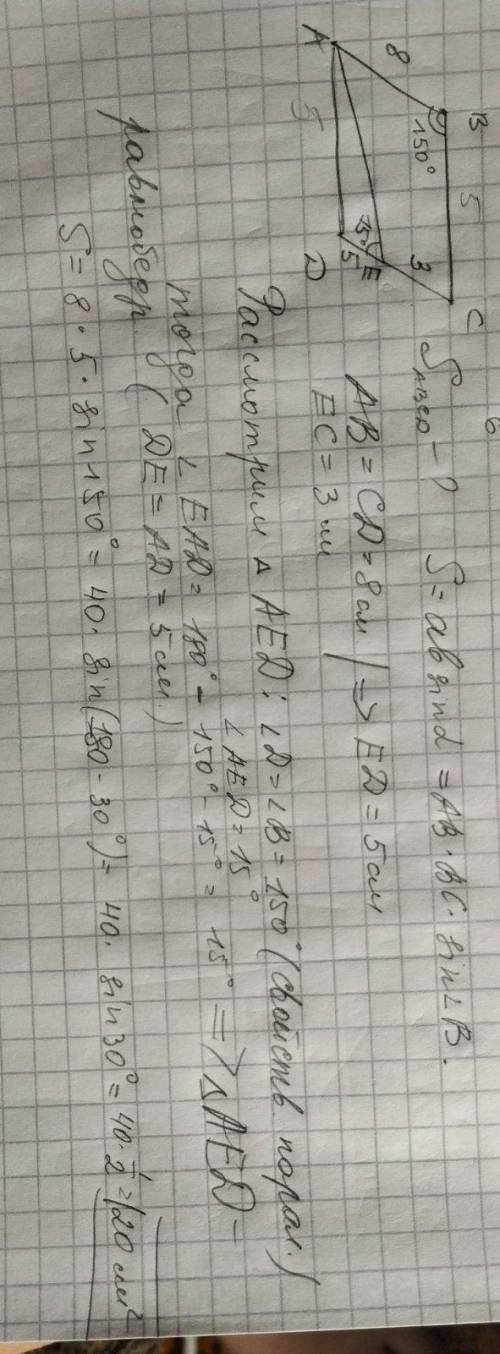 B 5 C
8 150° 3
A 5 D 15° E 5
S ABCD - ? S = ab sin α = AB · BC · sin ∠B.
AB = CD = 8 см | => ED = 5 см
EC = 3 см
Рассмотрим Δ AED: ∠D = ∠B = 150° (свойств парал.)
∠AED = 15°
тогда ∠EAD = 180° - 150° - 15° = 15° => Δ AED -
равнобедр. (DE = AD = 5 см.)
S = 8 · 5 · sin 150° = 40 · sin(180 - 30°) = 40 · sin 30° = 40 · 1/2 = 20 см²